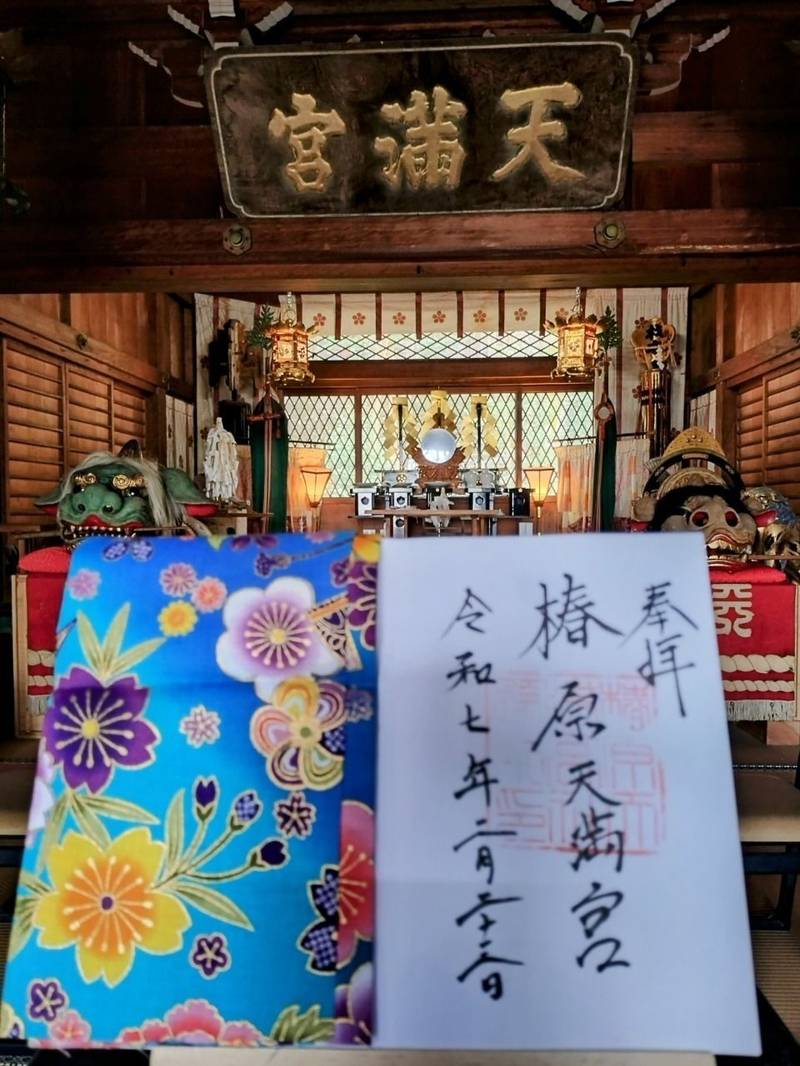 天満宮
奉拝
椿原天満宮
令和七年二月二十二日